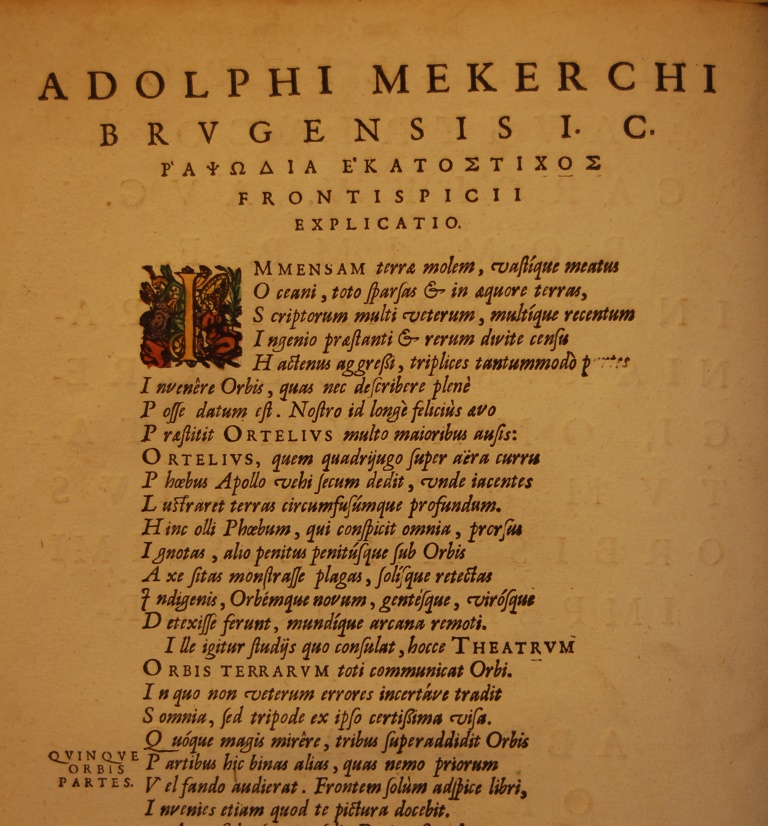 ADOLPHI MEKERCHI
BRVGENSIS I. C.
Ρ'ΑΨΩΔΙΑ Ε'ΚΑΤΟΣΤΙΧΟΣ
FRONTISPICII
EXPLICATIO.
IMMENSAM terræ molem, vastíque meatus
Oceani, toto sparsas & in æquore terras,
Scriptorum multi veterum, multíque recentum
Ingenio præstanti & rerum divite censu
Hactenus aggreßi, triplices tantummodò
Invenêre Orbis, quas nec describere plenè
Posse datum est. Nostro id longè feliciùs ævo
Præstitit ORTELIVS multo maioribus ausis:
ORTELIVS, quem quadrijugo super aëra curru
Phœbus Apollo vehi secum dedit, vnde iacentes
Lustraret terras circumfusúmque profundum.
Hinc olli Phœbum, qui conspicit omnia, prorsus
Ignotas, alio penitus penitúsque sub Orbis
Axe sitas monstrasse plagas, solísque retectas
Indigenis, Orbémque novum, gentésque, virósque
Detexisse ferunt, mundíque arcana remoti.
Ille igitur studijs quo consulat, hocce THEATRVM
ORBIS TERRARVM toti communicat Orbi.
In quo non veterum errores incertáve tradit
Somnia, sed tripode ex ipso certißima visa.
Quóque magis mirêre, tribus superaddidit Orbis
QVINQVE
ORBIS
PARTES.
Partibus hic binas alias, quas nemo priorum
Vel fando audierat. Frontem solùm adspice libri,
Invenies etiam quod te pictura docebit.